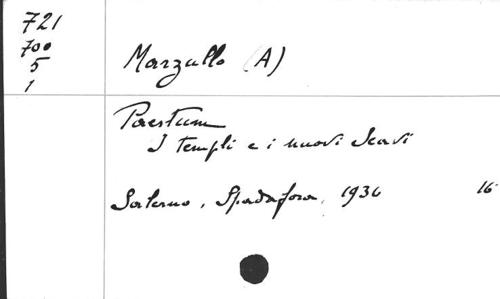 721
700
5
1
Marzullo (A)
Paestum
I templi e i nuovi Scavi
Salerno, Spadafora, 1936 16